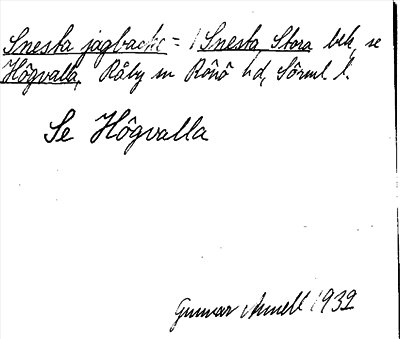 Snesta jagbacke = / Snesta, Stora beb, se
Högvalla, Råby sn Rönö hd, Sörml l.
Se Högvalla
Gunnar Arnell 1932